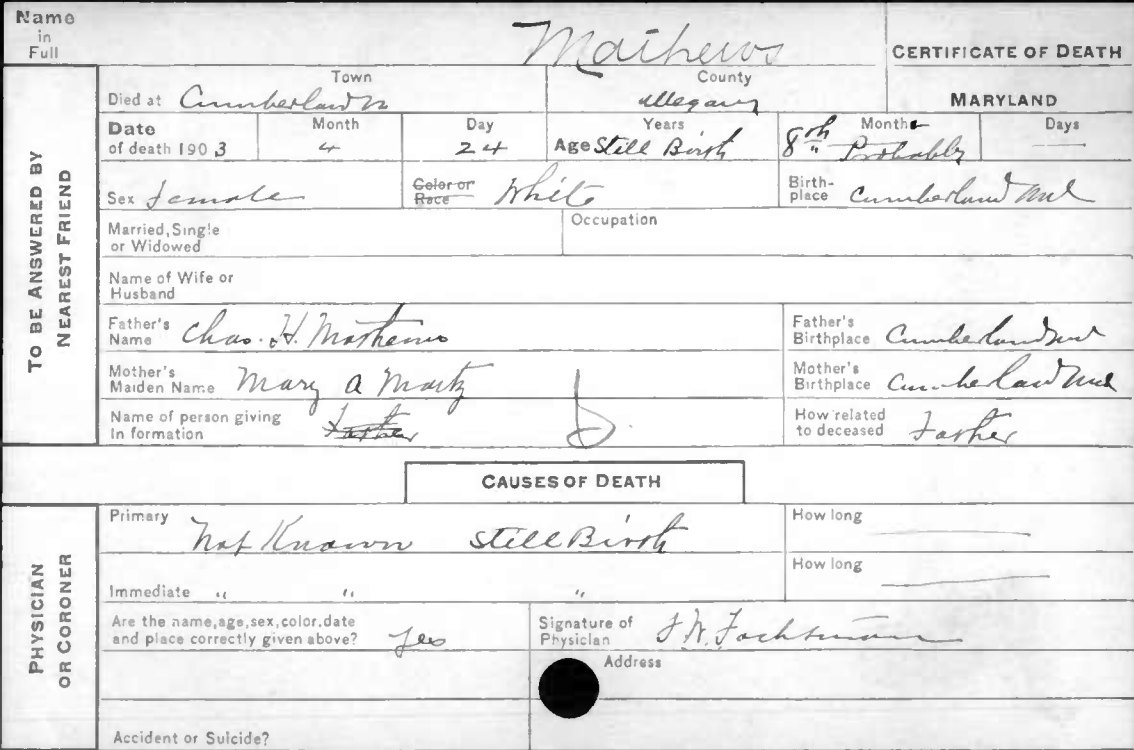 Name in Full Mathews
CERTIFICATE OF DEATH
TO BE ANSWERED BY NEAREST FRIEND
Died at Town Cumberland County Allegany MARYLAND
Date of death 1903 Month 4 Day 24 Age Years Still Birth Months 8th Probably Days —
Sex Female Color or Race White Birthplace Cumberland Md
Married, Single or Widowed Occupation
Name of Wife or Husband
Father's Name Chas. H. Mathews Father's Birthplace Cumberland Md
Mother's Maiden Name Mary A Martz Mother's Birthplace Cumberland Md
Name of person giving In formation Father How related to deceased Father
CAUSES OF DEATH
PHYSICIAN OR CORONER
Primary Not Known Still Birth How long —
Immediate " " " How long —
Are the name, age, sex, color, date and place correctly given above? Yes Signature of Physician
Address
Accident or Suicide?